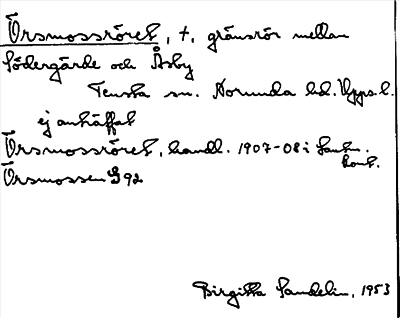 Örsmossröret, †, gränsrör mellan
Södergärde och Åsby
Tensta sn. Norunda hd. Upps. l.
ej anträffat
Örsmossröret, handl. 1907-08 i Lantm.
kont.
Örsmossen S 92
Birgitta Sandelin, 1953